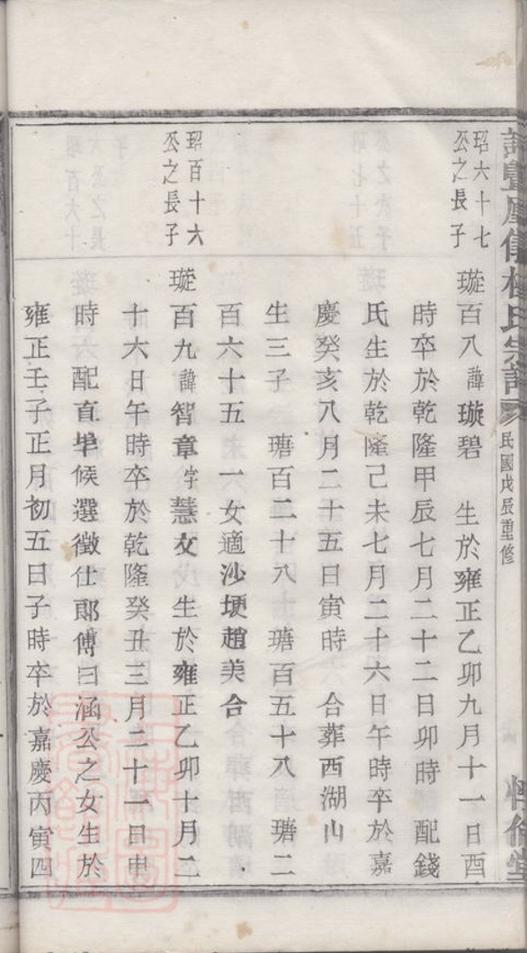 楊氏宗譜
民國戊辰重修
玿六十七
公之長子
璇百八諱璇碧 生於雍正乙卯九月十一日酉
時卒於乾隆甲辰七月二十二日卯時 配錢
氏生於乾隆己未七月二十六日午時卒於嘉
慶癸亥八月二十五日寅時 合葬西湖山
生三子 瑭百二十八 瑭百五十八 瑭二
百六十五 一女適沙埂趙美合
玿百十六
公之長子
璇百九諱智章字慧文 生於雍正乙卯十月二
十六日午時卒於乾隆癸丑三月二十一日申
時 配直埠候選徵仕郎傅曰涵公之女生於
雍正壬子正月初五日子時卒於嘉慶丙寅四